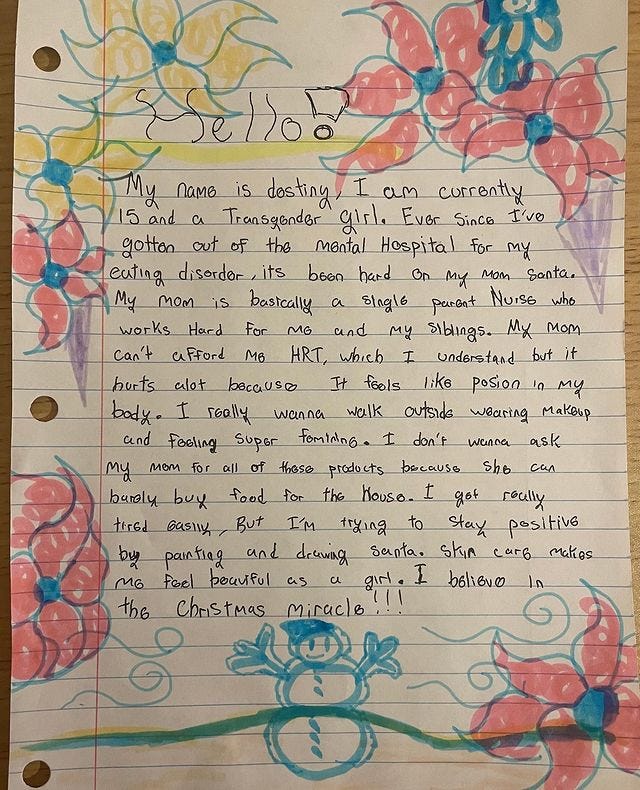 Hello!
My name is destiny, I am currently
15 and a Transgender girl. Ever since I've
gotten out of the mental Hospital for my
eating disorder, its been hard on my mom santa.
My mom is basically a single parent Nurse who
works Hard for me and my siblings. My mom
can't afford me HRT, which I understand but it
hurts alot because It feels like posion in my
body. I really wanna walk outside wearing makeup
and feeling super feminine. I don't wanna ask
my mom for all of these products because she can
barely buy food for the House. I get really
tired easily, But I'm trying to stay positive
by painting and drawing santa. skin care makes
me feel beauiful as a girl. I believe in
the Christmas miracle!!!